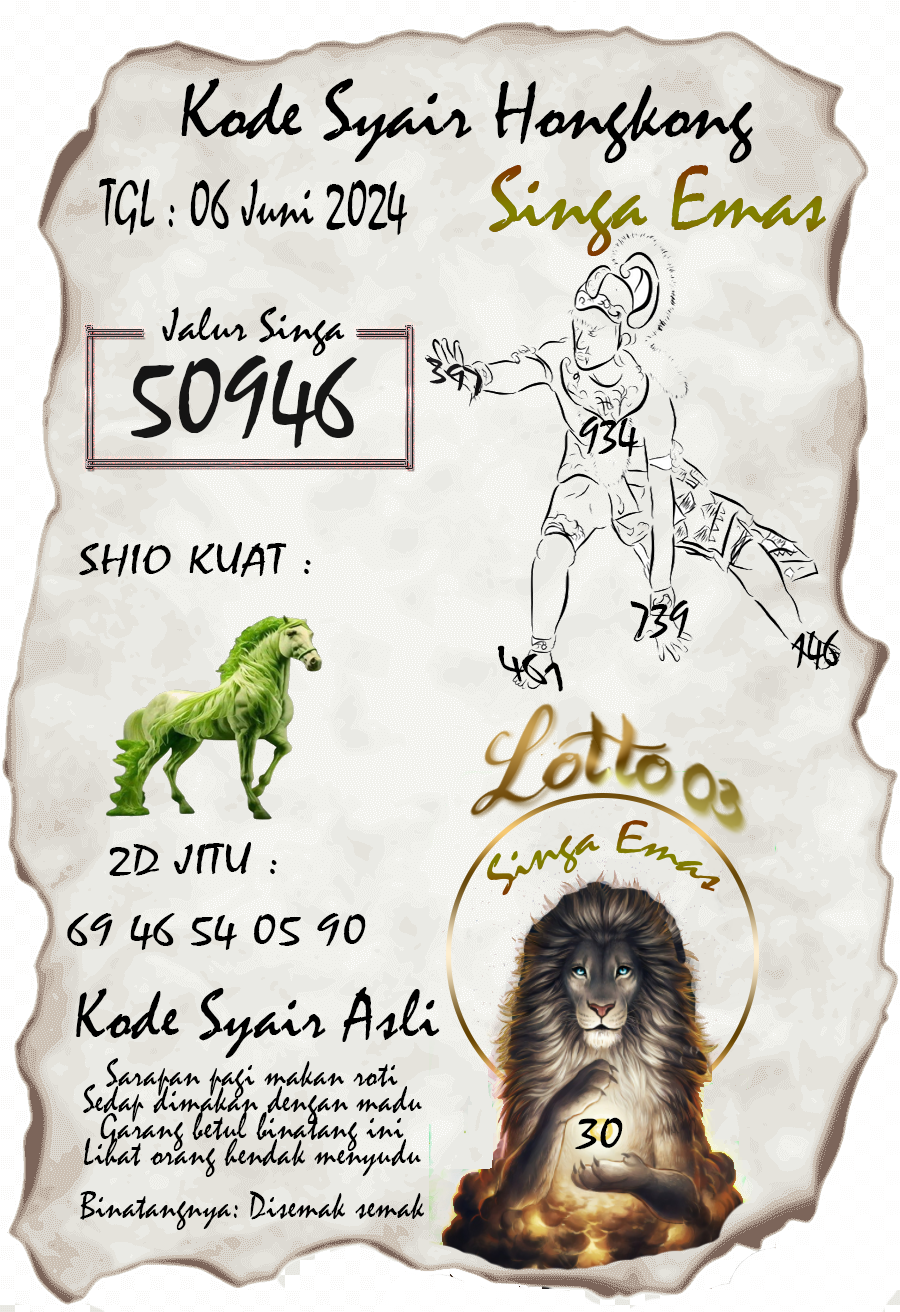 Kode Syair Hongkong
TGL : 06 Juni 2024
Singa Emas
Jalur Singa
50946
397
934
739
461
146
SHIO KUAT :
Lotto 03
Singa Emas
2D JITU :
69 46 54 05 90
Kode Syair Asli
Sarapan pagi makan roti
Sedap dimakan dengan madu
Garang betul binatang ini
Lihat orang hendak menyudu
Binatangnya: Disemak semak
30